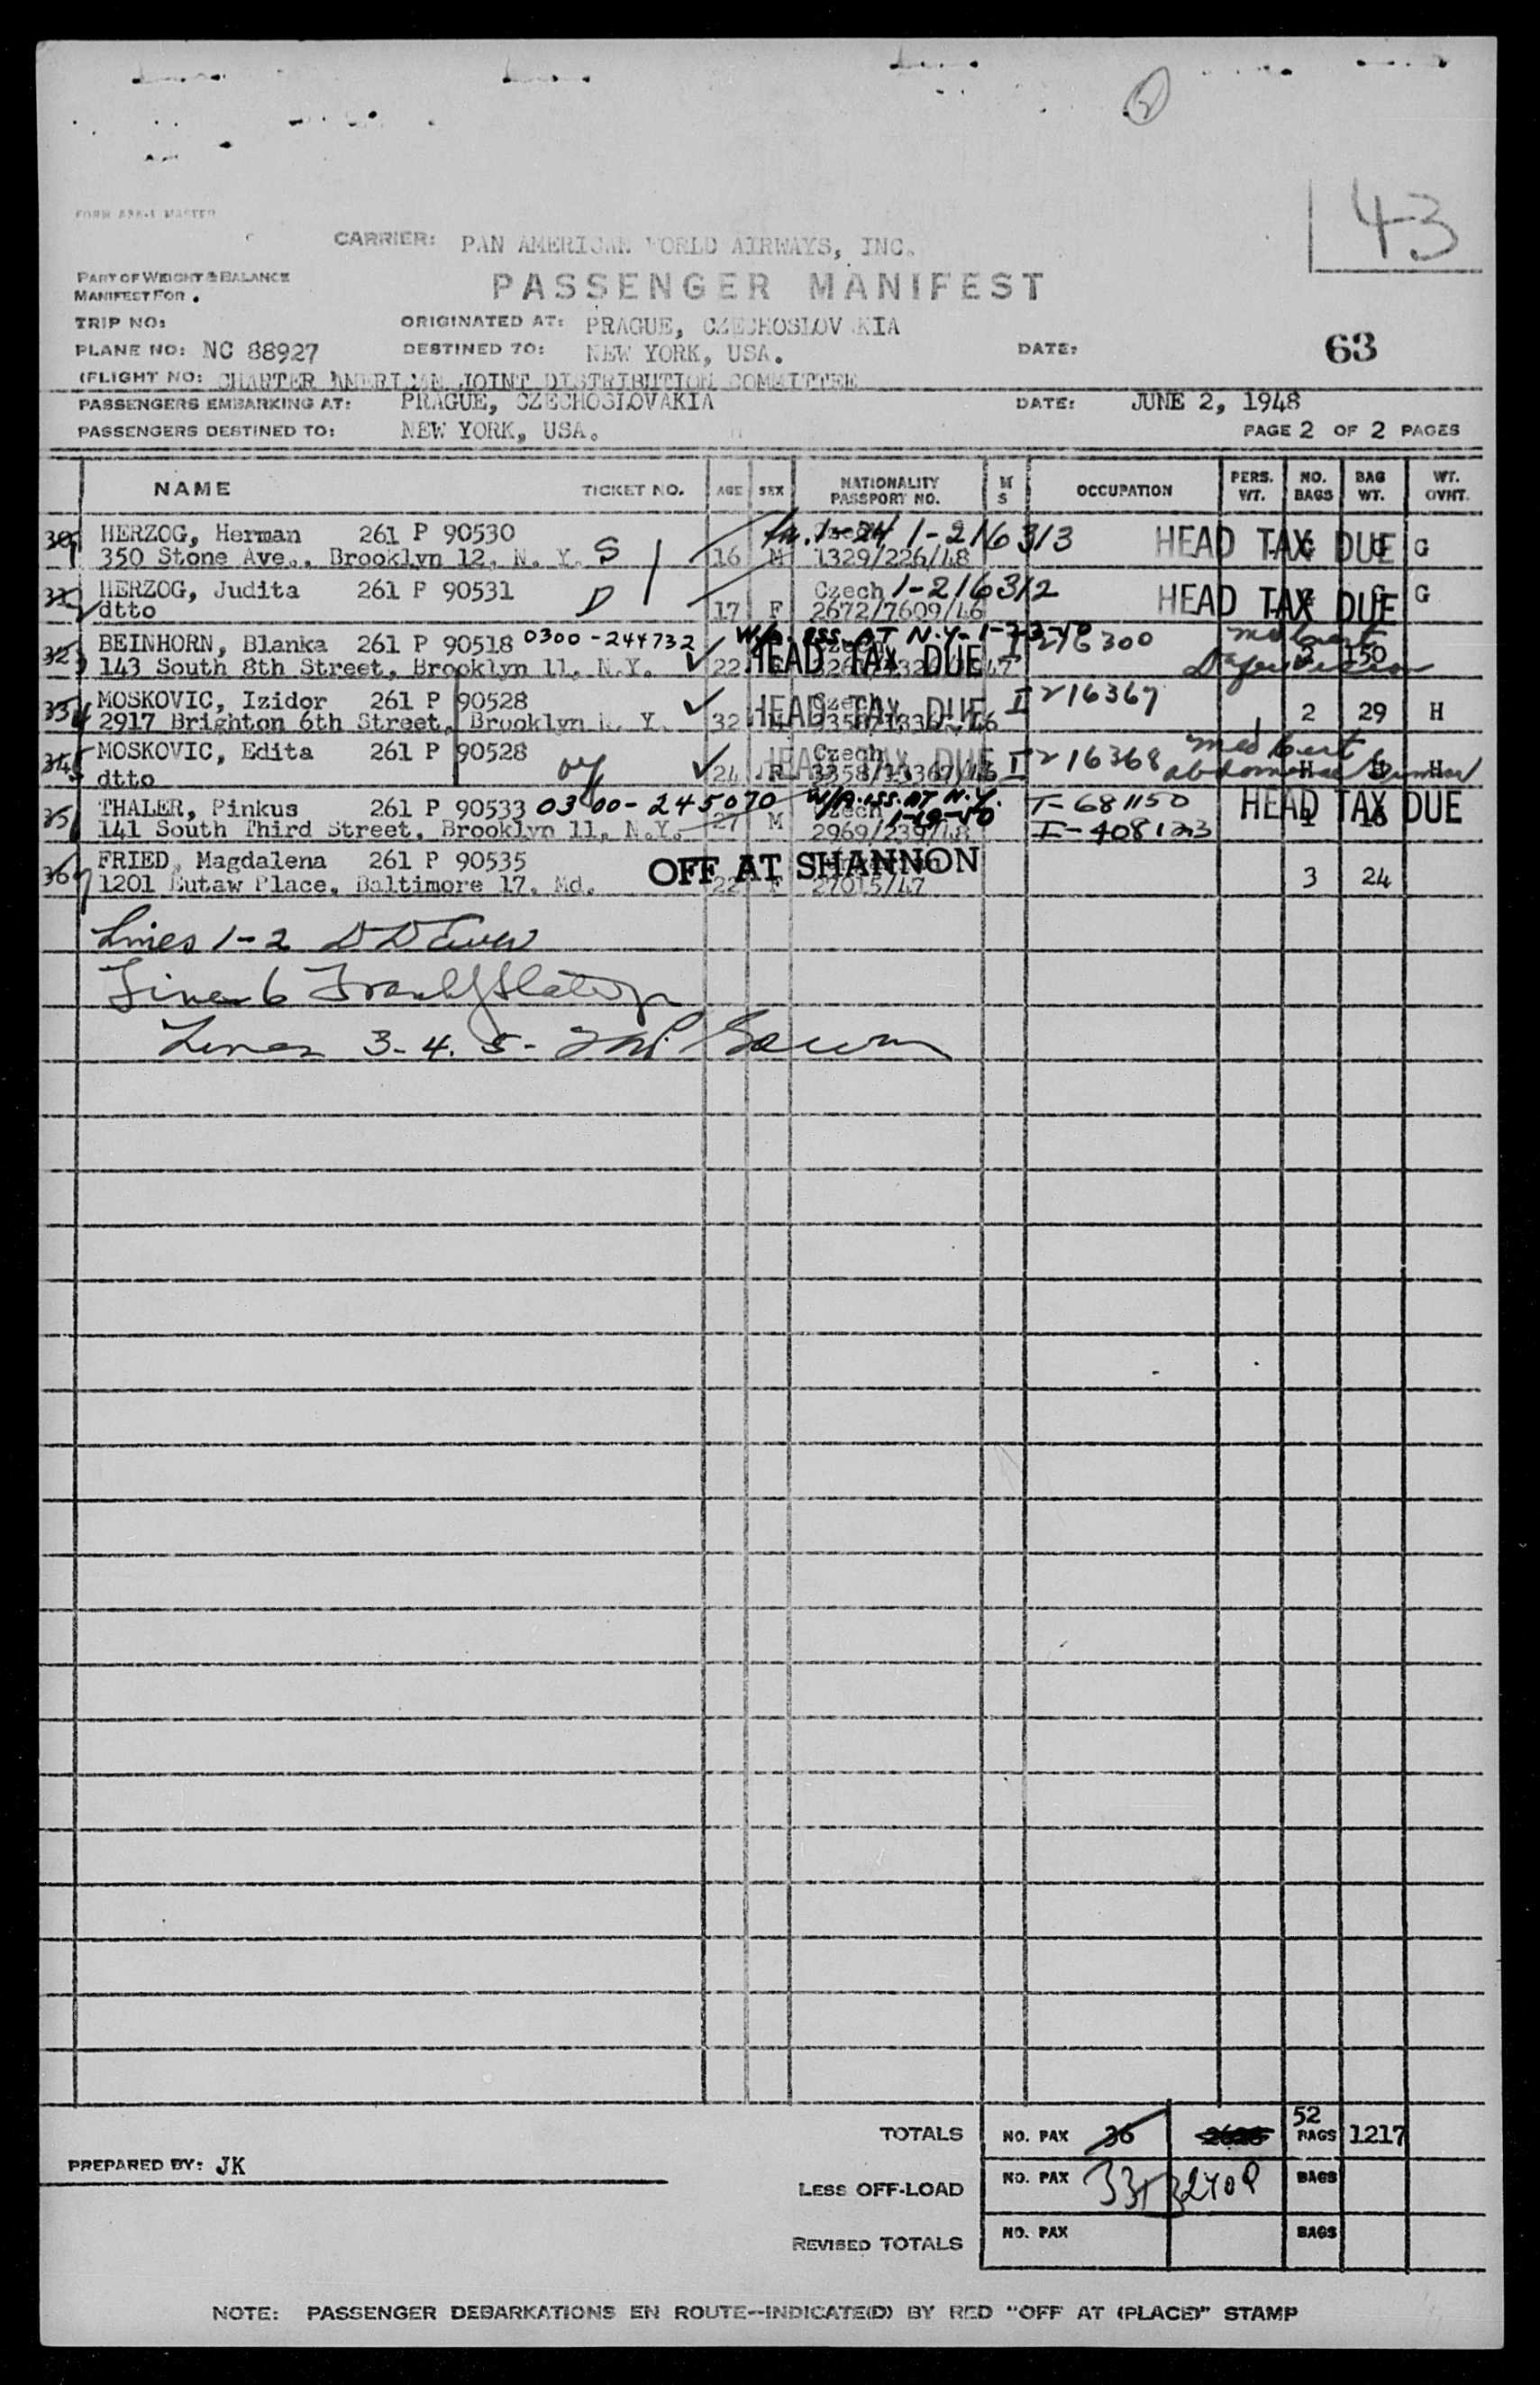 43
FORM 838-1 MASTER
CARRIER: PAN AMERICAN WORLD AIRWAYS, INC.
PART OF WEIGHT & BALANCE
MANIFEST FOR
PASSENGER MANIFEST
TRIP NO: ORIGINATED AT: PRAGUE, CZECHOSLOVAKIA
PLANE NO: NC 88927 DESTINED TO: NEW YORK, USA. DATE: 63
(FLIGHT NO: CHARTER AMERICAN JOINT DISTRIBUTION COMMITTEE
PASSENGERS EMBARKING AT: PRAGUE, CZECHOSLOVAKIA DATE: JUNE 2, 1948
PASSENGERS DESTINED TO: NEW YORK, USA. PAGE 2 OF 2 PAGES
NAME TICKET NO. AGE SEX NATIONALITY PASSPORT NO. M S OCCUPATION PERS. WT. NO. BAGS BAG WT. WT. OVHT.
HERZOG, Herman 261 P 90530 1-216313 HEAD TAX DUE G
350 Stone Ave., Brooklyn 12, N. Y. S 16 M 1329/226/48
HERZOG, Judita 261 P 90531 Czech 1-216312 HEAD TAX DUE G
dtto D 17 F 2672/7609/46
32 BEINHORN, Blanka 261 P 90518 0300-244732 W/A. ISS. AT N.Y. 216300 Med Cert
143 South 8th Street, Brooklyn 11, N.Y. 22 HEAD TAX DUE 150
MOSKOVIC, Izidor 261 P 90528 Czech I 216367
2917 Brighton 6th Street, Brooklyn N. Y. 32 HEAD TAX DUE 2 29 H
MOSKOVIC, Edita 261 P 90528 Czech I 216368 Med Cert
dtto 24 HEAD TAX DUE H H H
THALER, Pinkus 261 P 90533 0300-245070 W/A. ISS. AT N.Y. T-681150 HEAD TAX DUE
141 South Third Street, Brooklyn 11, N.Y. 27 M Czech 2969/239/48 I-408123
FRIED, Magdalena 261 P 90535 OFF AT SHANNON
1201 Eutaw Place, Baltimore 17, Md. 22 F 27015/47 3 24
Lines 1-2
Line 6
Lines 3-4. 5-
TOTALS NO. PAX 36 52 BAGS 1217
PREPARED BY: JK
LESS OFF-LOAD NO. PAX BAGS
REVISED TOTALS NO. PAX BAGS
NOTE: PASSENGER DEBARKATIONS EN ROUTE--INDICATE(D) BY RED "OFF AT (PLACE)" STAMP